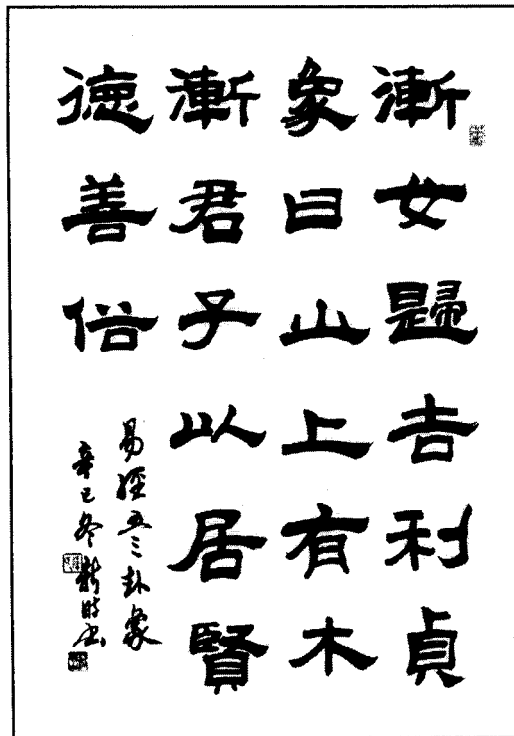 漸女歸吉利貞
象曰山上有木
漸君子以居賢
德善俗
易經五三卦象
辛巳冬新時書